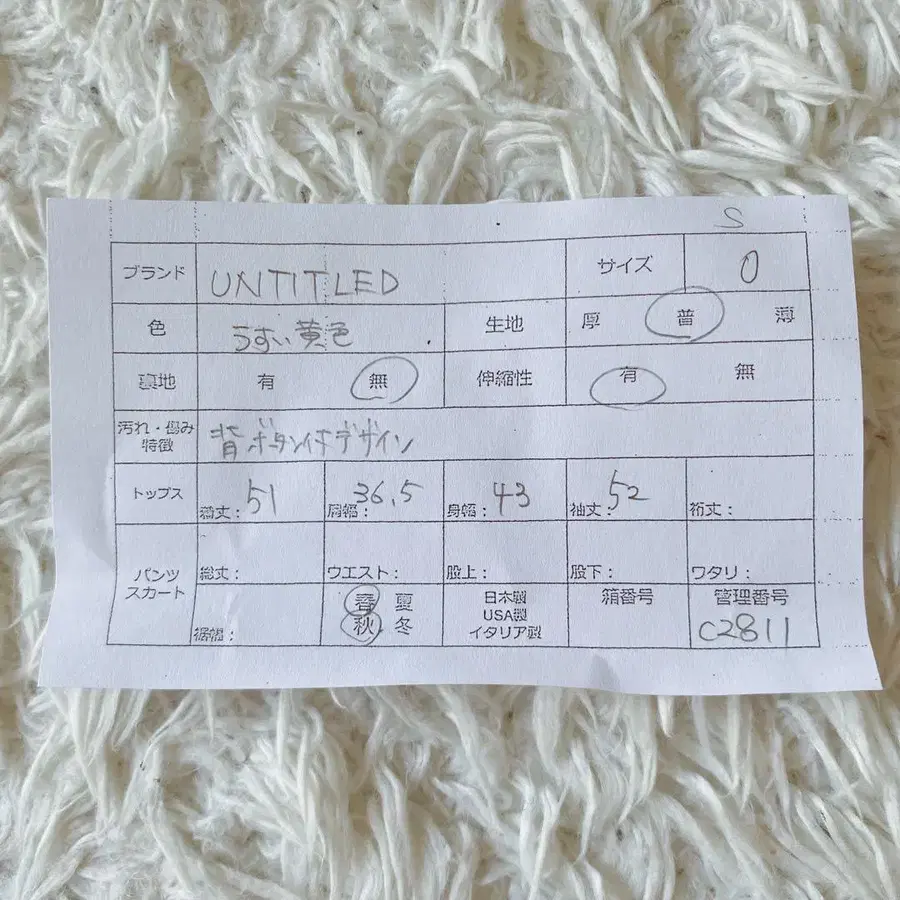 S
ブランド UNTITLED サイズ 0
色 うすい黄色 生地 厚 普 薄
裏地 有 無 伸縮性 有 無
汚れ・傷み
特徴 背ボタンホデザイン
トップス 着丈: 51 肩幅: 36.5 身幅: 43 袖丈: 52 裄丈:
パンツ
スカート 総丈: ウエスト: 股上: 股下: ワタリ:
裾幅: 春 夏 日本製 箱番号 管理番号
秋 冬 USA製 C2811
イタリア製